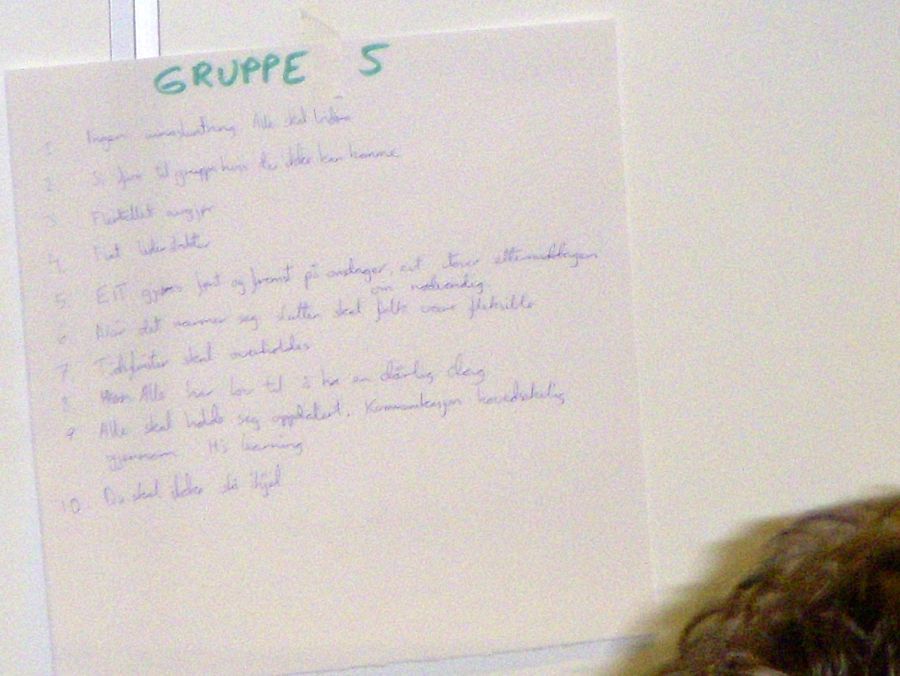 GRUPPE 5
1. Ingen Alle skal bidra
2. Si fra til gruppa hvis du ikke kan komme
3. Flertallet avgjør
4.
5. EIT gjøres først og fremst på onsdager, evt. utover ettermiddagen
om nødvendig
6. Når det nærmer seg slutten skal folk være fleksible
7. Tidsfrister skal overholdes
8. Alle har lov til å ha en dårlig dag
9. Alle skal holde seg oppdatert. Kommunikasjon hovedsakelig
gjennom It's learning
10. Du skal ikke slå ihjel